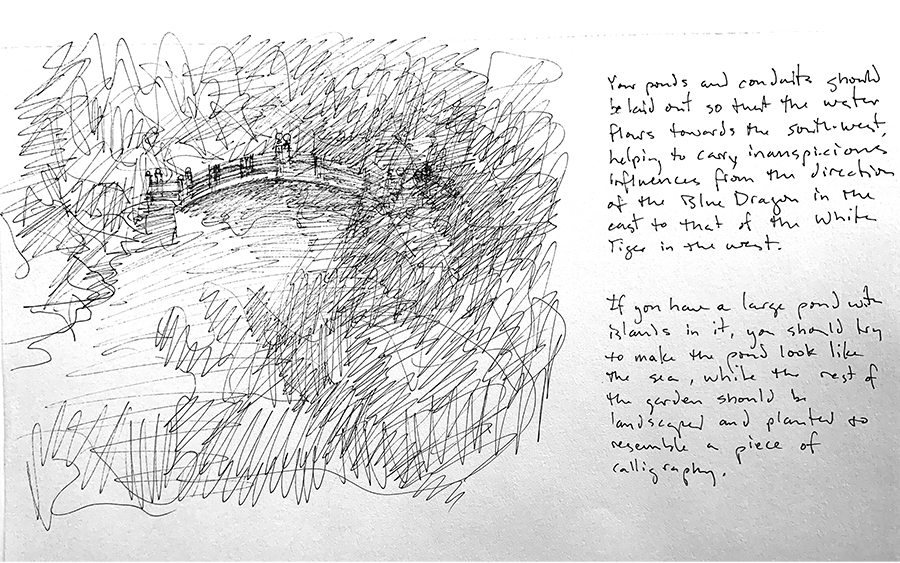 Your ponds and conduits should
be laid out so that the water
flows towards the south-west,
helping to carry inauspicious
influences from the direction
of the Blue Dragon in the
east to that of the White
Tiger in the west.
If you have a large pond with
islands in it, you should try
to make the pond look like
the sea, while the rest of
the garden should be
landscaped and planted to
resemble a piece of
calligraphy.